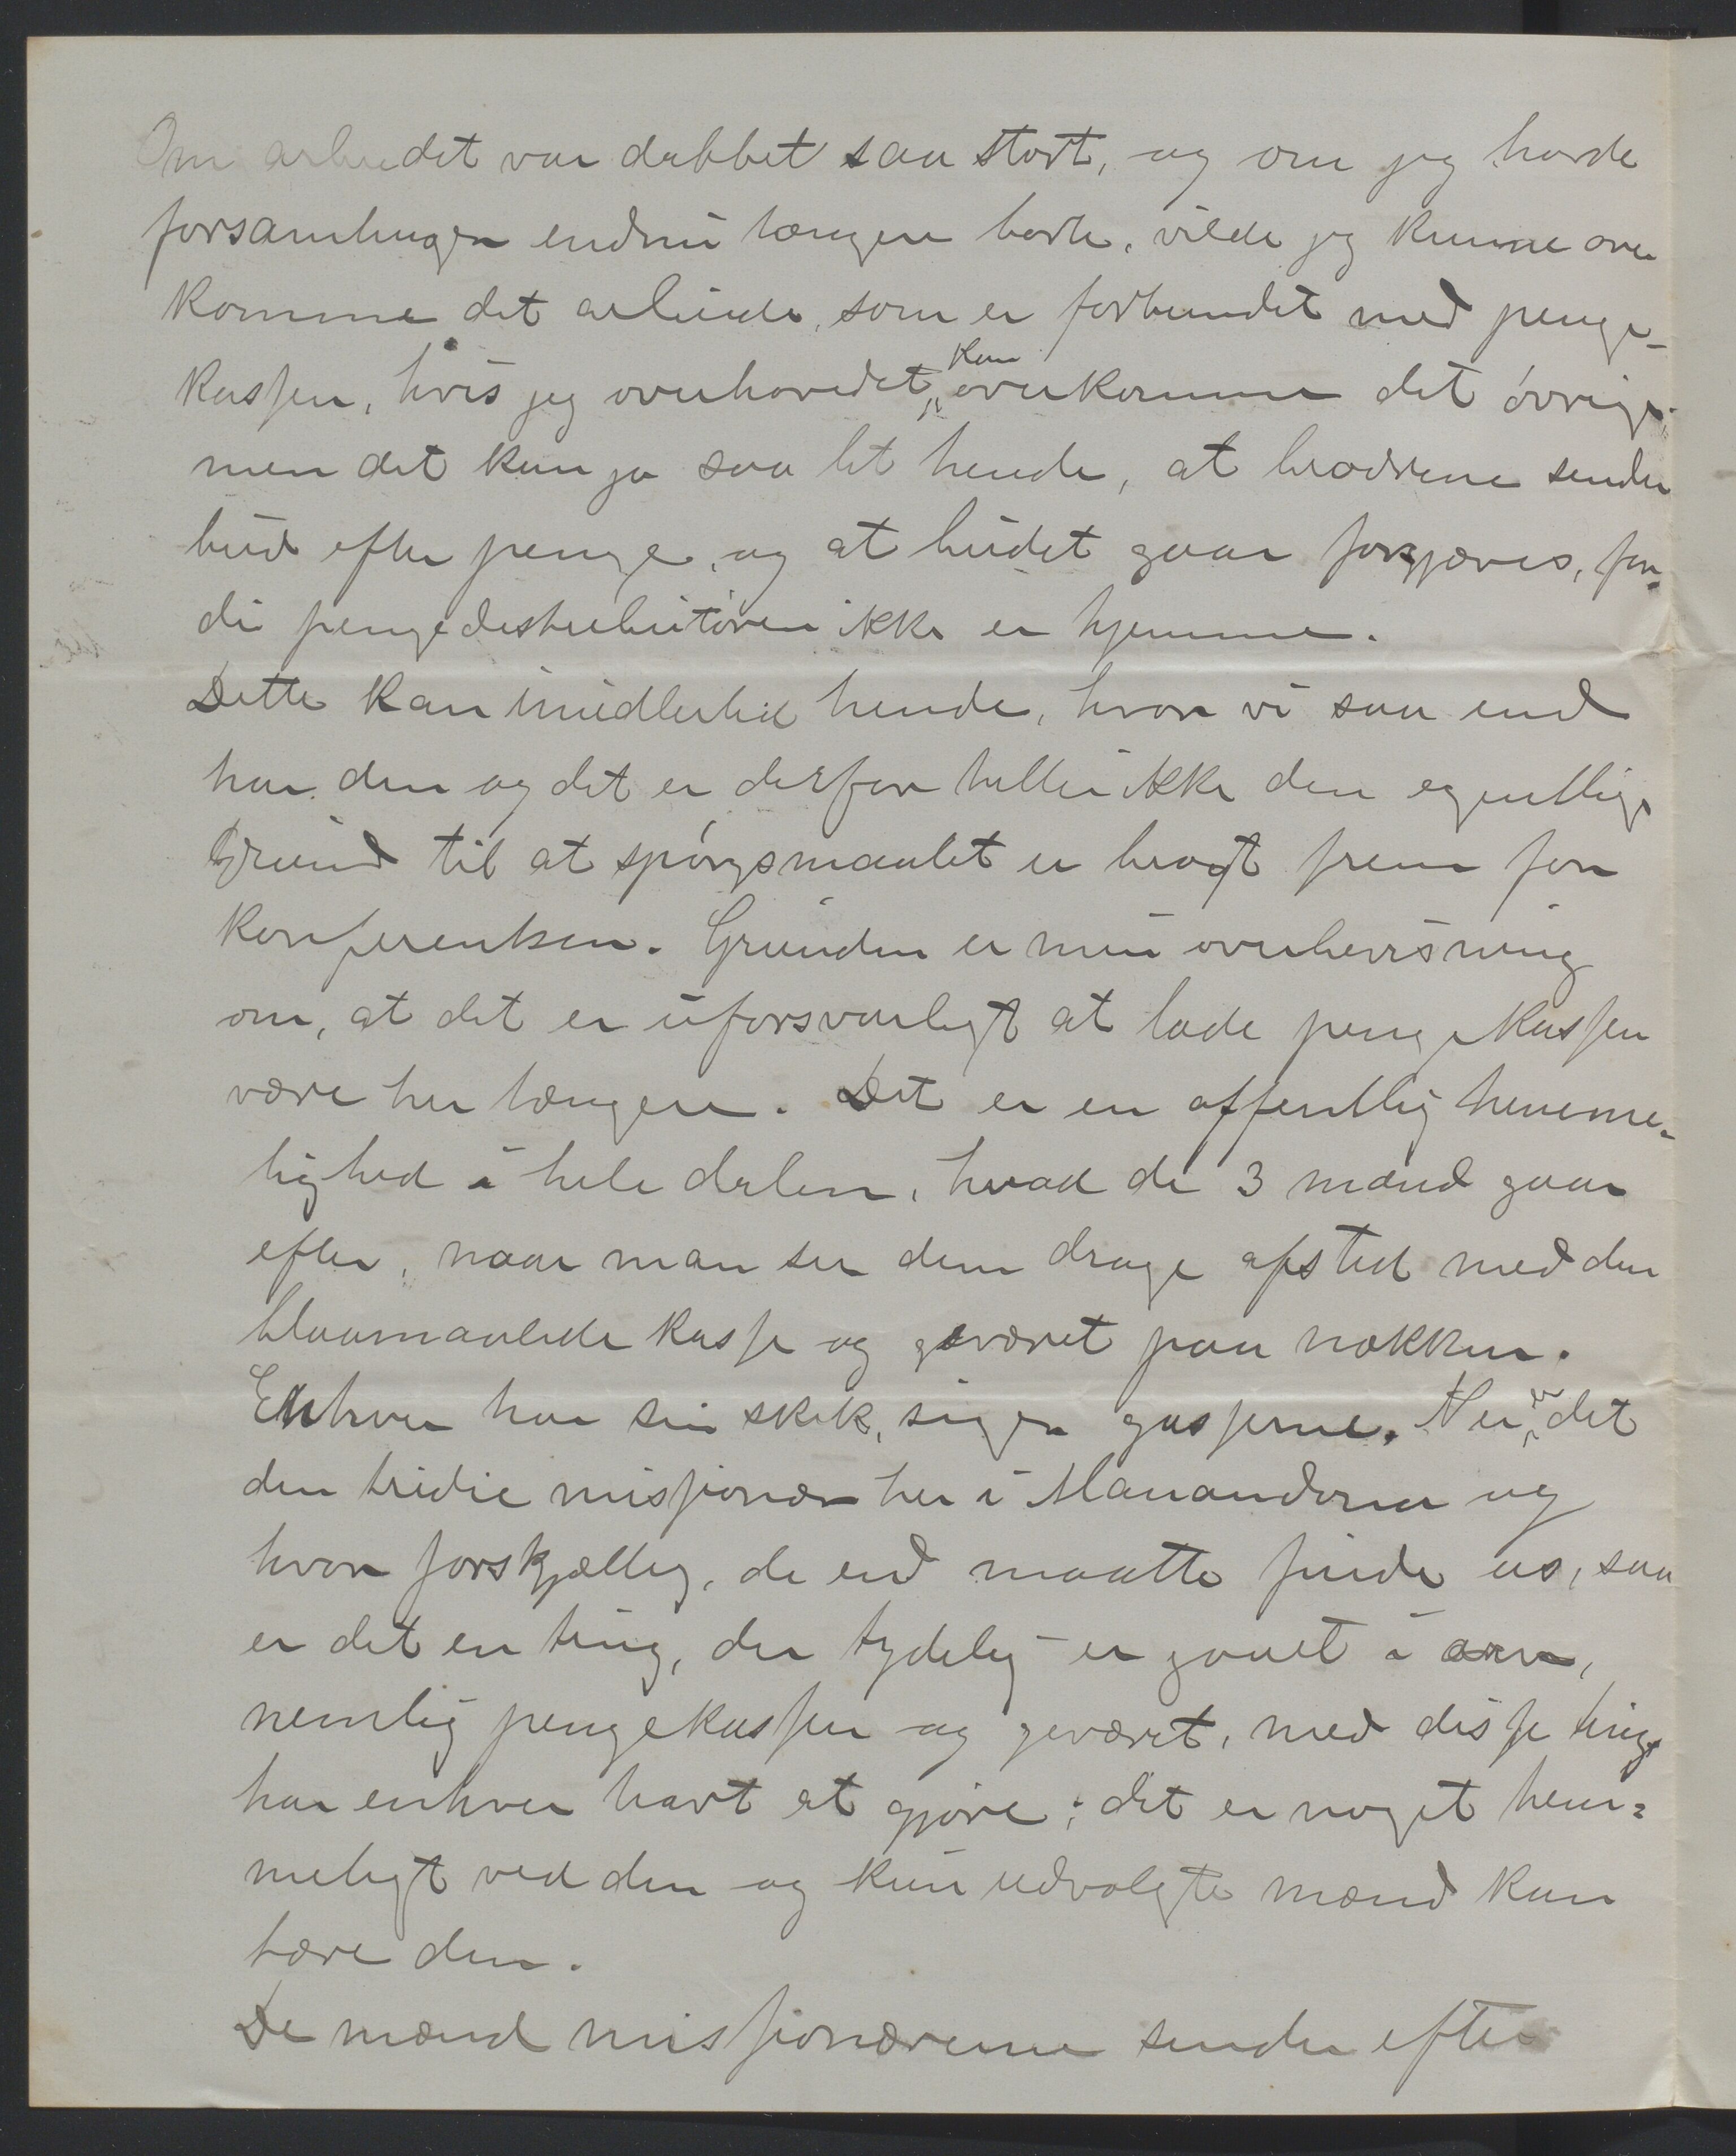 Om arbeidet var dobbet saa stort, og om jeg havde
forsamlinger endnu længere borte, vilde jeg kunne over
komme det arbeide, som er forbundet med penge-
kassen, hvis jeg overhovedet kan overkomme det øvrige,
men det kan jo saa let hende, at brødrene sender
bud efter penge, og at budet gaar forgjæves, for-
di pengedistributøren ikke er hjemme.
Dette kan imidlertid hende, hvor vi saa end
har den og det er derfor heller ikke den egentlige
Grund til at spørgsmaalet er bragt frem for
Konferentsen. Grunden er min overbevisning
om, at det er uforsvarligt at lade pengekassen
være her længere. Det er en offentlig hemme-
lighed i hele dalen, hvad de 3 mænd gaar
efter, naar man ser dem drage afsted med den
blaamalede kasse og geværet paa nakken.
Enhver har sin skik, siger gasserne. Nu er det
den tridie missionær her i Manandona og
hvor forskjællig, de end maatte finde os, saa
er det en ting, der tydelig er gaaet i arv,
nemlig pengekassen og geværet, med disse ting
har enhver havt at gjøre; det er noget hem-
meligt ved den og kun udvalgte mænd kan
bære den.
De mænd missionærerne sender efter